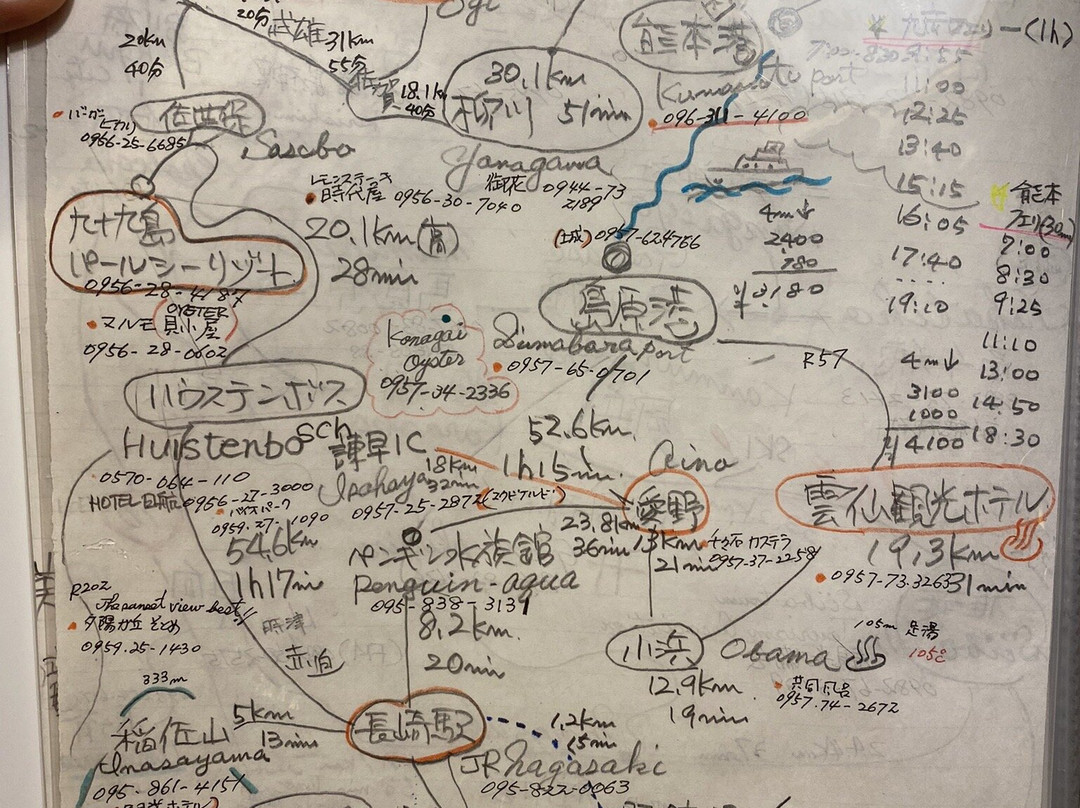 Ogi
20分
武雄
31km
55分
20km
40分
佐賀
18.1k
40分
30.1km
柳川 51min
Yanagawa
御花 0944-73
2189
熊本港
Kumamoto port
096-311-4100
(1h)
11:00
12:25
13:40
15:15
16:05
17:40
19:10
熊本
フェリ(30m)
7:00
8:30
9:25
11:10
13:00
14:50
18:30
4m↓
2400
780
¥3,180
4m↓
3100
1000
¥4100
佐世保
Sasebo
0956-25-6685
レモンステーキ
時代屋 0956-30-7040
九十九島
パールシーリゾート
0956-28-4187
OYSTER
マルモ 貝小屋
0956-28-0602
20.1km(高)
28min
(城) 0957-624766
島原港
Simabara port
0957-65-0701
R57
Konagai
Oyster
0957-34-2336
ハウステンボス
Huistenbosch
0570-064-110
HOTEL日航 0956-27-3000
0959-27-1090
54.6km
1h17min
諫早IC
Isahaya
18km
32min
0957-25-2872
52.6km
1h15min
Aino
愛野
23.8km
36min
13km
21min
千々石 カステラ
0957-37-2258
雲仙観光ホテル
19.3km
31min
0957-73-3263
ペンギン水族館
Penguin-aqua
095-838-3131
8.2km
20min
R202
The sunset view best!!
夕陽が丘 そとめ
0959.25-1430
時津
小浜
Obama
105m 足湯
105℃
12.9km
19min
0957.74-2672
333m
稲佐山
Inasayama
095-861-4151
5km
13min
長崎駅
JR Nagasaki
095-822-0063
1.2km
15min